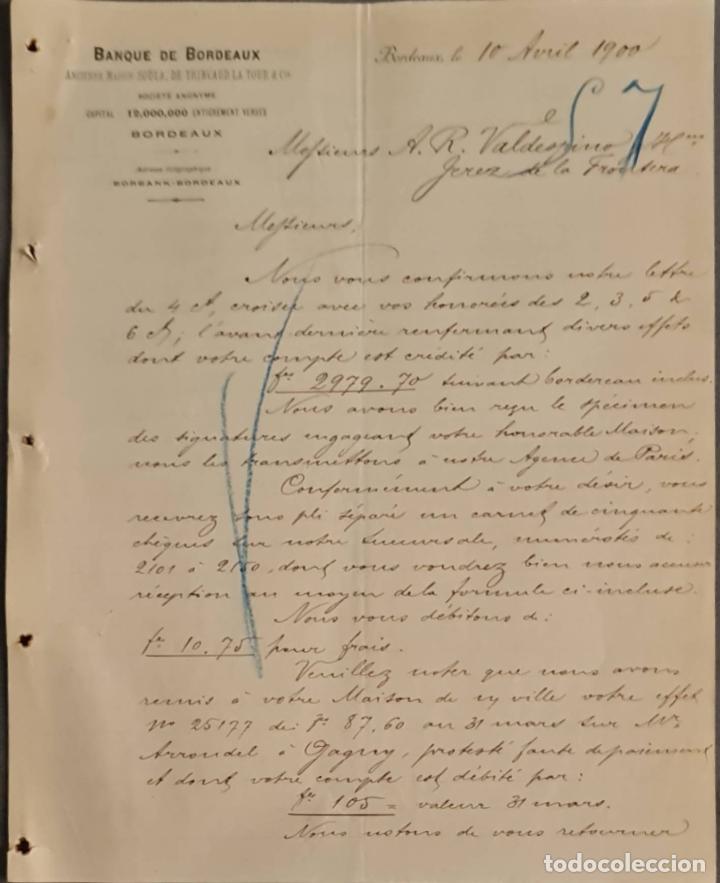 BANQUE DE BORDEAUX
ANCIENNE MAISON SOULA, DE TRINCAUD LA TOUR & Cie
SOCIÉTÉ ANONYME
CAPITAL : 12,000,000 ENTIÈREMENT VERSÉS
BORDEAUX
Adresse télégraphique
BORBANK-BORDEAUX
Bordeaux, le 10 Avril 1900
Messieurs A. R. Valdespino & Hno
Jerez de la Frontera
57
Messieurs,
Nous vous confirmons notre lettre
du 4 Ct, croisée avec vos honorées des 2, 3, 5 &
6 Ct; l'avant dernière renfermant divers effets
dont votre compte est crédité par:
frs 2979.70 suivant bordereau inclus.
Nous avons bien reçu le spécimen
des signatures engageant votre honorable Maison,
nous les transmettons à notre Agence de Paris.
Conformément à votre désir, vous
recevrez sous pli séparé un carnet de cinquante
chèques sur notre Succursale, numérotés de:
2101 à 2150, dont vous voudrez bien nous accuser
réception au moyen de la formule ci-incluse.
Nous vous débitons de:
frs 10.75 pour frais.
Veuillez noter que nous avons
remis à votre Maison de n/ ville votre effet
No 25177 de: Frs 87,60 au 31 mars sur Mr
Arrondel à Gagny, protesté faute de paiement
et dont votre compte est débité par:
frs 105 = valeur 31 mars.
Nous notons de vous retourner
todocoleccion.net